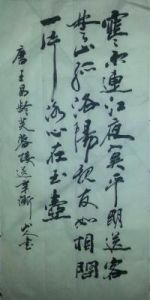 寒雨連江夜入吳平明送客
楚山孤洛陽親友如相問
一片冰心在玉壺
唐王昌齡芙蓉樓送辛漸